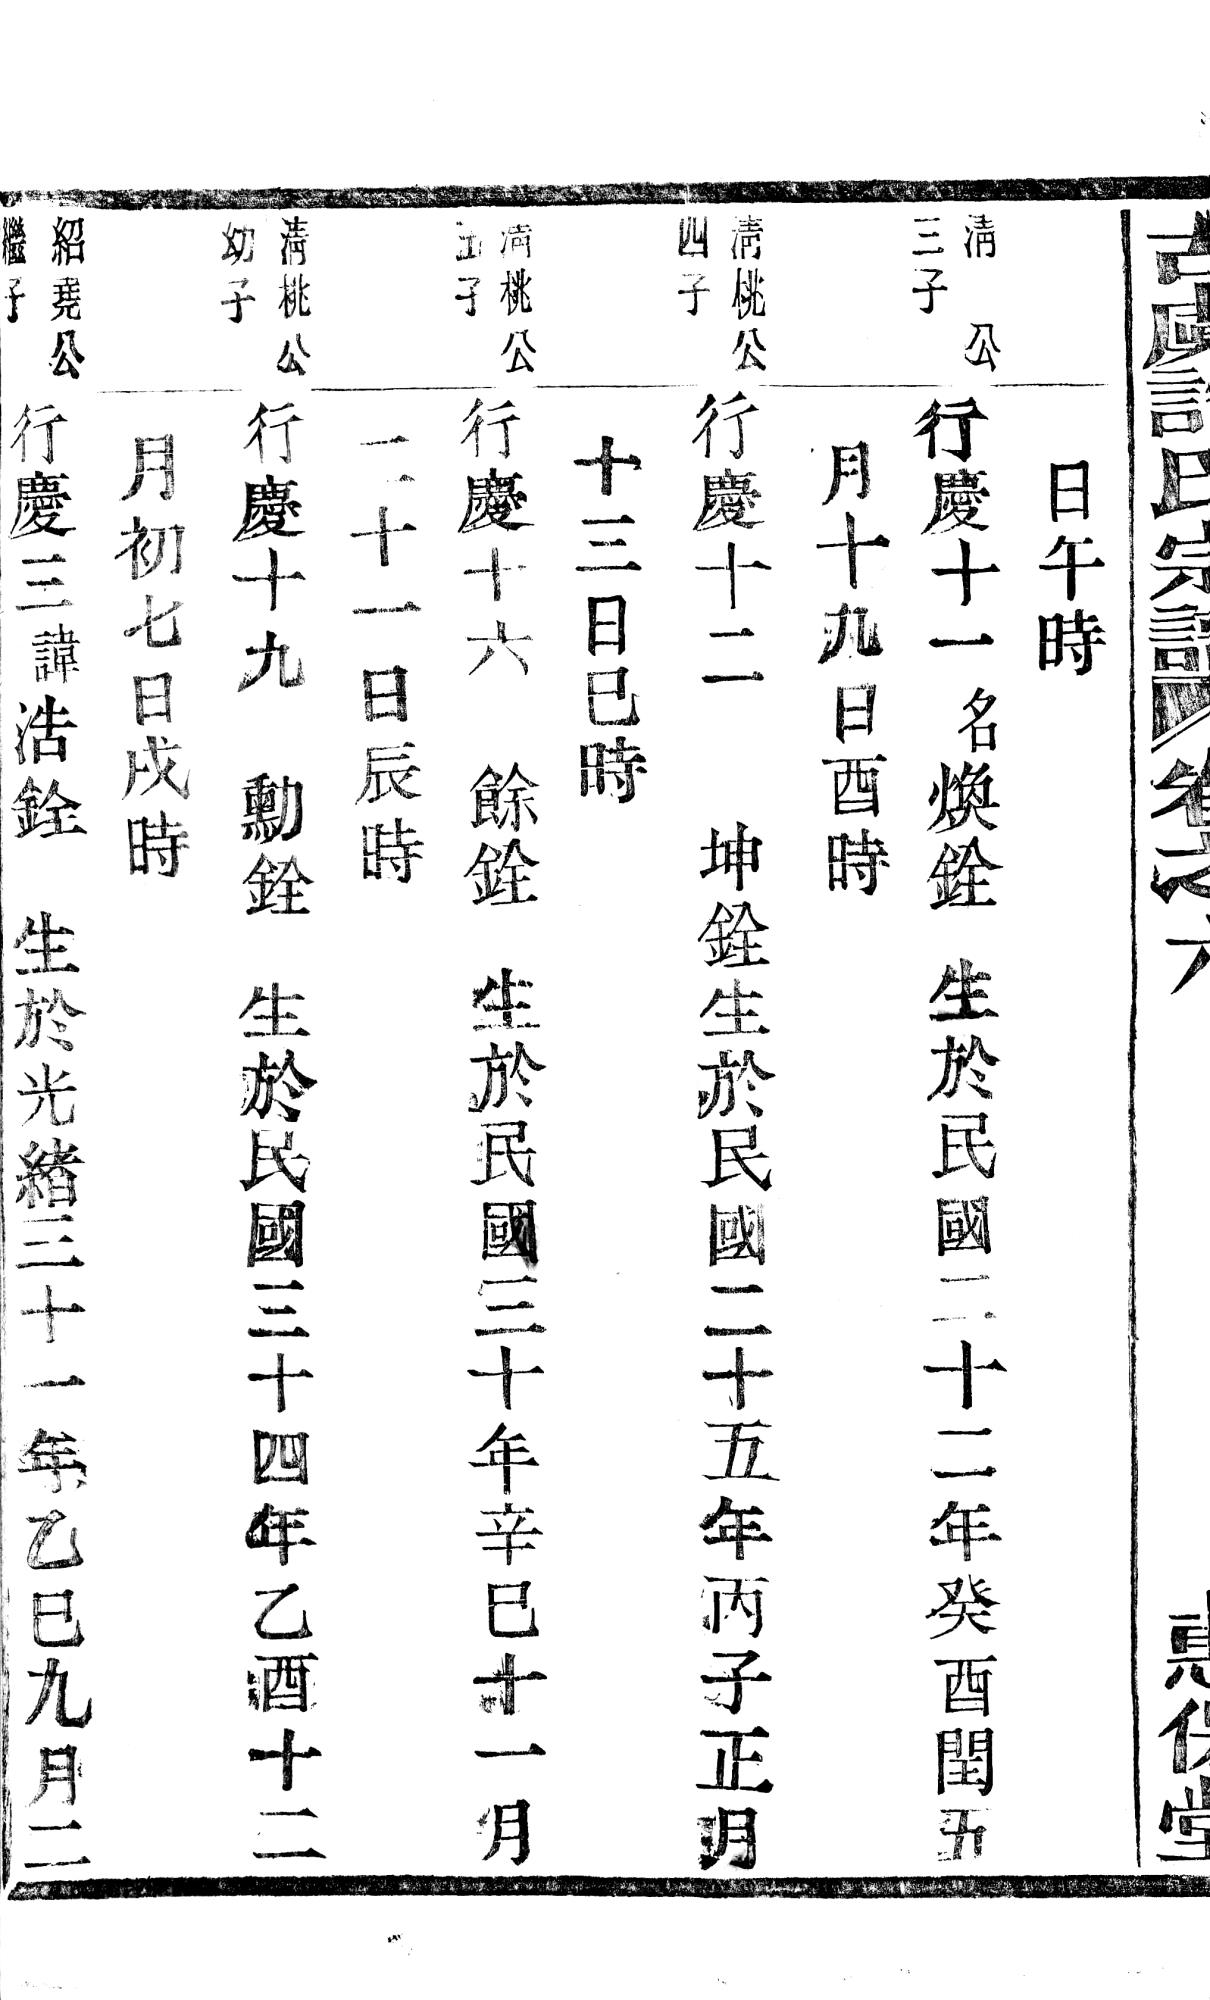 氏宗譜卷之六
堂
日午時
清 公
三子
行慶十一 名煥銓 生於民國二十二年癸酉閏五
月十九日酉時
清桃公
四子
行慶十二 坤銓生於民國二十五年丙子正月
十三日巳時
清桃公
五子
行慶十六 餘銓 生於民國三十年辛巳十一月
二十一日辰時
清桃公
幼子
行慶十九 勳銓 生於民國三十四年乙酉十二
月初七日戌時
紹堯公
繼子
行慶三諱浩銓 生於光緒三十一年乙巳九月二